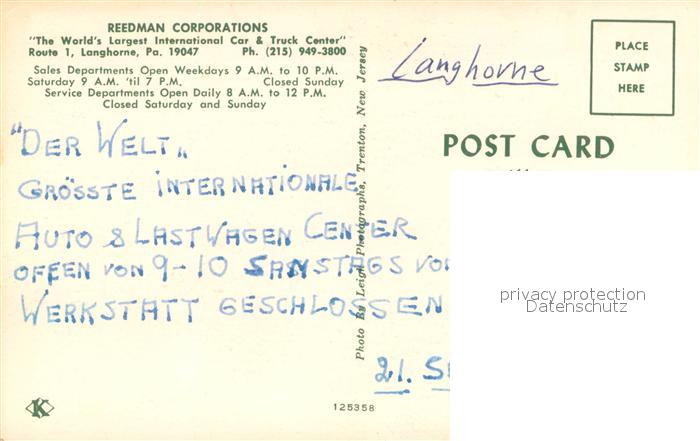 REEDMAN CORPORATIONS
"The World's Largest International Car & Truck Center"
Route 1, Langhorne, Pa. 19047 Ph. (215) 949-3800
Sales Departments Open Weekdays 9 A.M. to 10 P.M.
Saturday 9 A.M. 'til 7 P.M. Closed Sunday
Service Departments Open Daily 8 A.M. to 12 P.M.
Closed Saturday and Sunday
Langhorne
PLACE
STAMP
HERE
POST CARD
"DER WELT"
GRÖSSTE INTERNATIONALE
AUTO & LASTWAGEN CENTER
OFFEN VON 9-10 SAMSTAGS VO
WERKSTATT GESCHLOSSEN
21. S
Photo By Leigh Photographs, Trenton, New Jersey
K
125358
privacy protection
Datenschutz